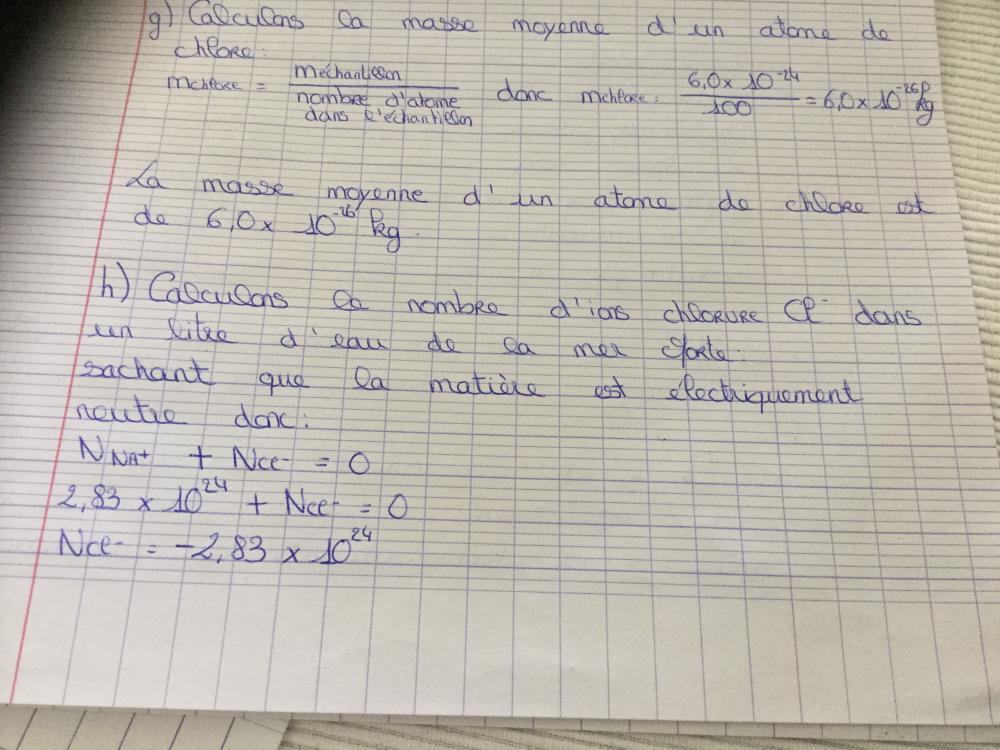 g) Calculons la masse moyenne d'un atome de
chlore:
mchlore = méchantillon / nombre d'atome dans l'échantillon donc mchlore = 6,0 x 10^-24 / 100 = 6,0 x 10^-26 kg
La masse moyenne d'un atome de chlore est
de 6,0 x 10^-26 kg.
h) Calculons le nombre d'ions chlorure Cl^- dans
un litre d'eau de la mer Morte.
sachant que la matière est electriquement
neutre donc:
N_NA+ + N_Cl- = 0
2,83 x 10^24 + N_Cl- = 0
N_Cl- = -2,83 x 10^24